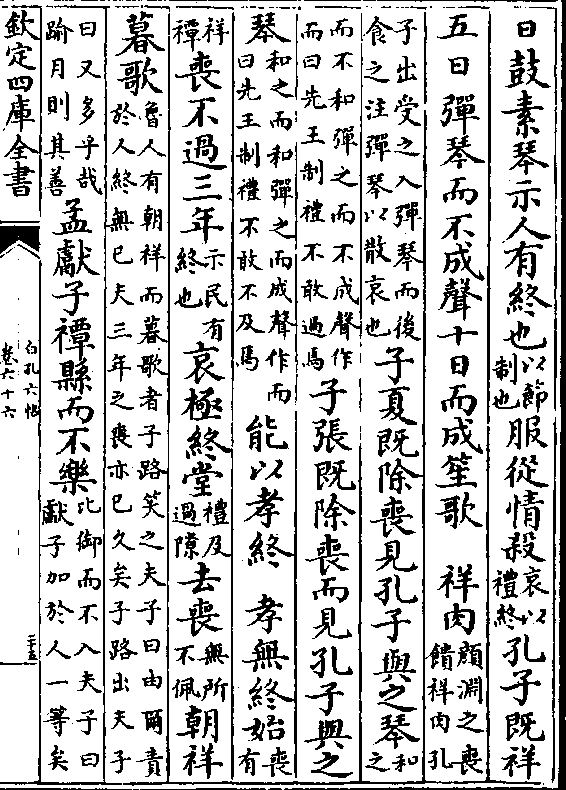 日鼓素琴示人有終也以節制也服從情殺哀以禮終孔子既祥
五日彈琴而不成聲十日而成笙歌　祥肉顔淵之喪饋祥肉孔
子出受之入彈琴而後食之注彈琴以散哀也子夏既除喪見孔子與之琴和之
而不和彈之而不成聲作而曰先王制禮不敢過焉子張既除喪而見孔子與之
琴和之而和彈之而成聲作而曰先王制禮不敢不及焉能以孝終　孝無終始喪有
祥禫喪不過三年示民有終也哀極終堂禮及過隙去喪無所不佩朝祥
暮歌魯人有朝祥而暮歌者子路笑之夫子曰由爾責於人終無已夫三年之喪亦已久矣子路出夫子
曰又多乎哉踰月則其善孟獻子禫縣而不樂比御而不入夫子曰獻子加於人一等矣
欽定四庫全書
白孔六帖
卷六十六
二十五